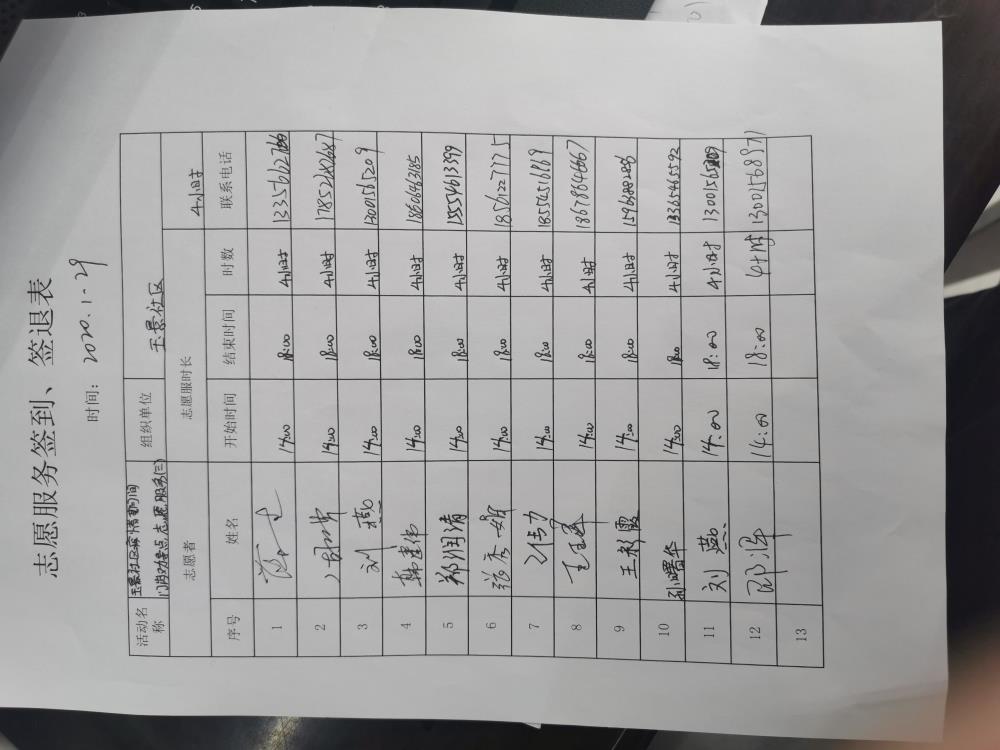 志愿服务签到、签退表
时间: 2020.1-29
活动名称 玉景社区疫情期间门岗劝导点志愿服务(三) 组织单位 玉景社区
志愿者 志愿服时长 4小时
序号 姓名 开始时间 结束时间 时数 联系电话
1 14:00 18:00 4小时
2 14:00 18:00 4小时 17852182687
3 刘燕 14:00 18:00 4小时 13001565209
4 韩建伟 14:00 18:00 4小时 18606463185
5 郑润清 14:00 18:00 4小时 15554613399
6 张秀娟 14:00 18:00 4小时 18561227775
7 14:00 18:00 4小时 18554516869
8 14:00 18:00 4小时 18678646667
9 王彩霞 14:00 18:00 4小时
10 孙曙华 14:00 18:00 4小时 13365465592
11 刘燕 14:00 18:00 4小时
12 邵泽 14:00 18:00 4小时 13001568971
13